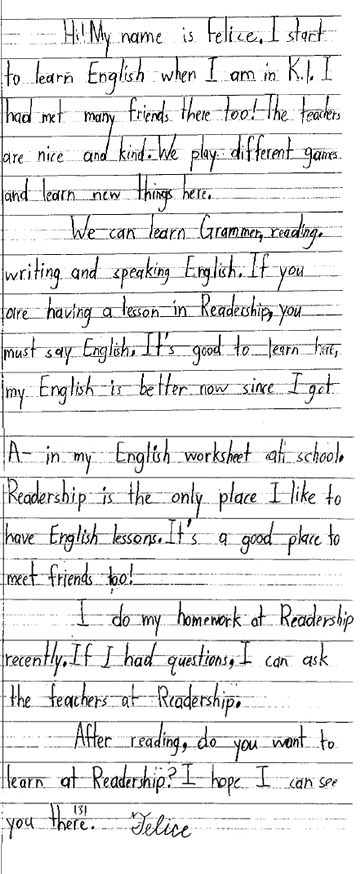 Hi! My name is Felice. I start
to learn English when I am in K.1. I
had met many friends there too! The teachers
are nice and kind. We play different games
and learn new things here.
We can learn Grammer, reading.
writing and speaking English. If you
are having a lesson in Readership, you
must say English. It's good to learn here,
my English is better now since I got
A- in my English worksheet at school.
Readership is the only place I like to
have English lessons. It's a good place to
meet friends too!
I do my homework at Readership
recently. If I had questions, I can ask
the teachers at Readership.
After reading, do you want to
learn at Readership? I hope I can see
you there. (3) Felice